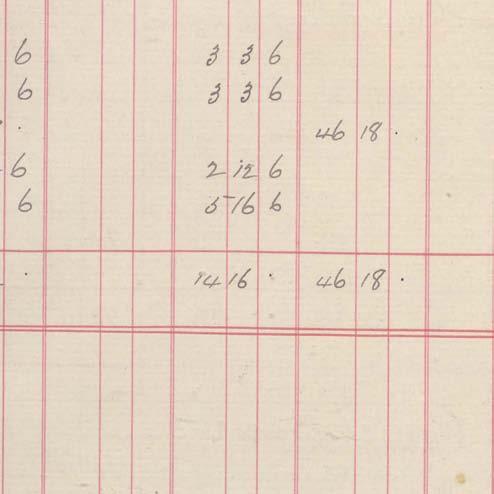 6 3 3 6
6 3 3 6
. 46 18 .
6 2 12 6
6 5 16 6
. 14 16 . 46 18 .